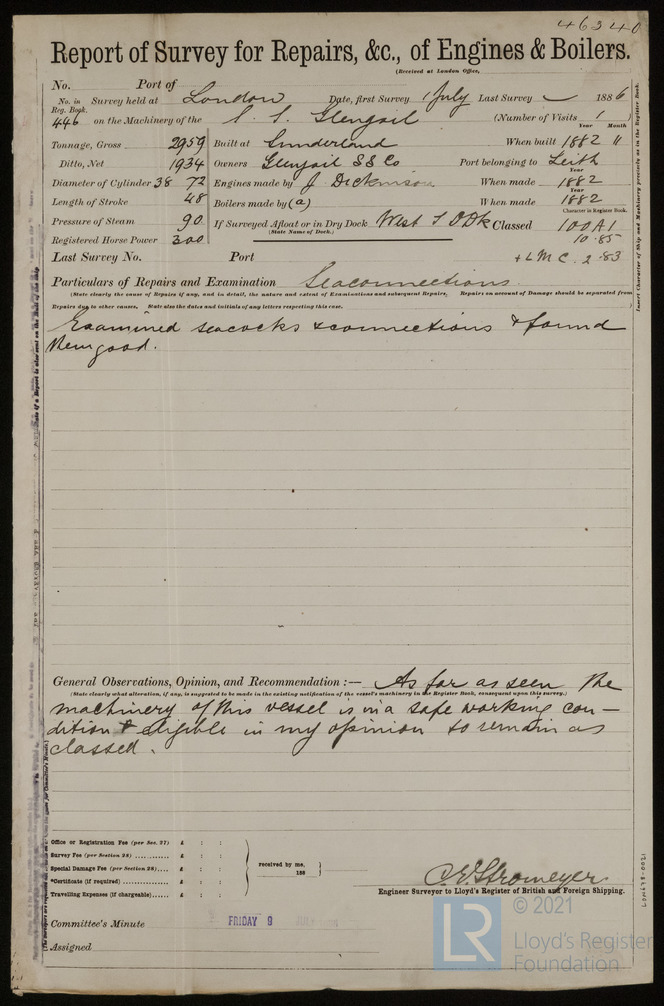 46340
Report of Survey for Repairs, &c., of Engines & Boilers.
(Received at London Office,
No. Port of
No. in Reg. Book. Survey held at London Date, first Survey 1 July Last Survey 1886
446 on the Machinery of the S. S. Glengoil (Number of Visits 1 )
Year Month
Tonnage, Gross 2959 Built at Sunderland When built 1882 11
Ditto, Net 1934 Owners Glengoil SS Co Port belonging to Leith
Year
Diameter of Cylinder 38 72 Engines made by J Dickinson When made 1882
Year
Length of Stroke 48 Boilers made by (a) When made 1882
Character in Register Book.
Pressure of Steam 90 If Surveyed Afloat or in Dry Dock West I O Dk Classed 100 A1
(State Name of Dock.)
Registered Horse Power 300 10.85
Last Survey No. Port + LMC. 2.83
Particulars of Repairs and Examination Seaconnections.
(State clearly the cause of Repairs if any, and in detail, the nature and extent of Examinations and subsequent Repairs, Repairs on account of Damage should be separated from
Repairs due to other causes, State also the dates and initials of any letters respecting this case.
Examined seacocks & connections & found
them good.
General Observations, Opinion, and Recommendation :— As far as seen the
(State clearly what alteration, if any, is suggested to be made in the existing notification of the vessel's machinery in the Register Book, consequent upon this survey.)
machinery of this vessel is in a safe working con–
dition & eligible in my opinion to remain as
classed.
Office or Registration Fee (per Sec. 27) £ : :
Survey Fee (per Section 28) £ : :
Special Damage Fee (per Section 28) £ : :
*Certificate (if required) £ : :
Travelling Expenses (if chargeable) £ : :
received by me,
188
C. E. Stromeyer
Engineer Surveyor to Lloyd's Register of British and Foreign Shipping.
Committee's Minute FRIDAY 9 JULY
Assigned
Insert Character of Ship and Machinery precisely as in the Register Book.
LON678-0021
© 2021
LR
Lloyd's Register
Foundation